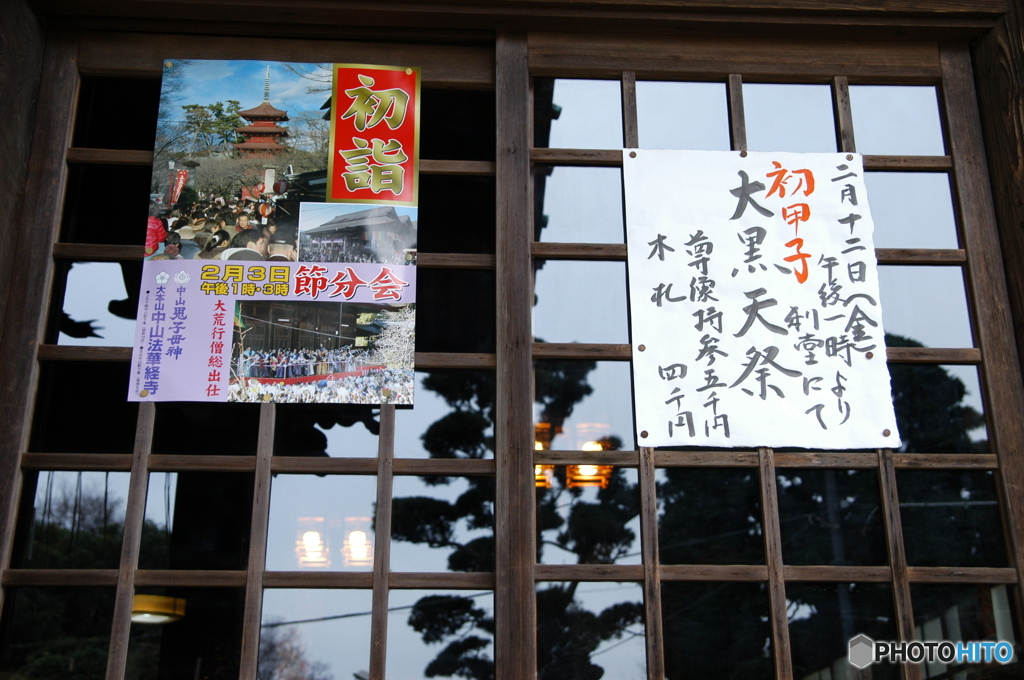 初詣
2月3日
午後1時・3時
節分会
大荒行僧総出仕
中山鬼子母神
大本山中山法華経寺
二月十二日(金)
午後一時より
刹堂にて
初甲子
大黒天祭
尊像時参五千円
木札 四千円
PHOTOHITO